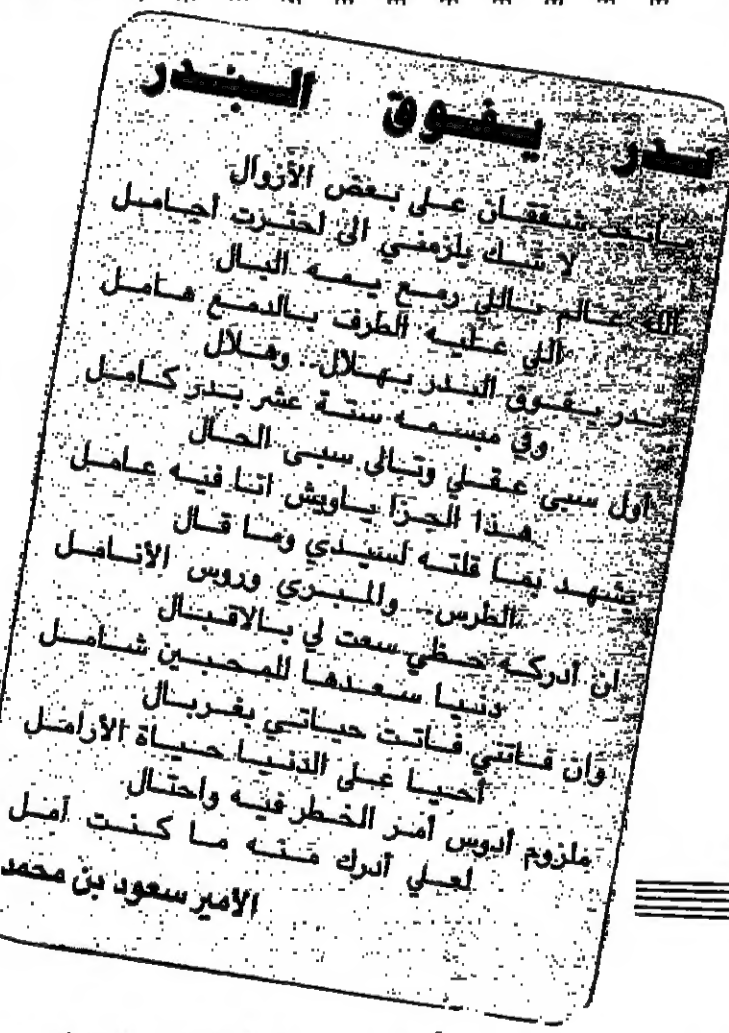 بدر يفوق البدر
مانت شفقان على بعض الأزوال
لا شك يلزمني الى لحترت أجامل
الله عالم باللي رمع يمه البال
اللي عليه الطرف بالدمع هامل
بدر يفوق البدر بهلال.. وهلال
وفي مبسمه ستة عشر بدر كامل
أول سبى عقلي وتالى سبى الحال
هذا الجزا ياويش انا فيه عامل
يشهد بما قلته لسيدي وما قال
الطرس.. والمبري وروس الأنامل
ان أدركه حظي سعت لي بالاقبال
دنيا سعدها للمحبين شامل
وان فاتني فاتت حياتي بغربال
أحيا على الدنيا حياة الأرامل
ملزوم أدوس أمر الخطر فيه واحتال
لعلي أدرك منه ما كنت آمل
الأمير سعود بن محمد